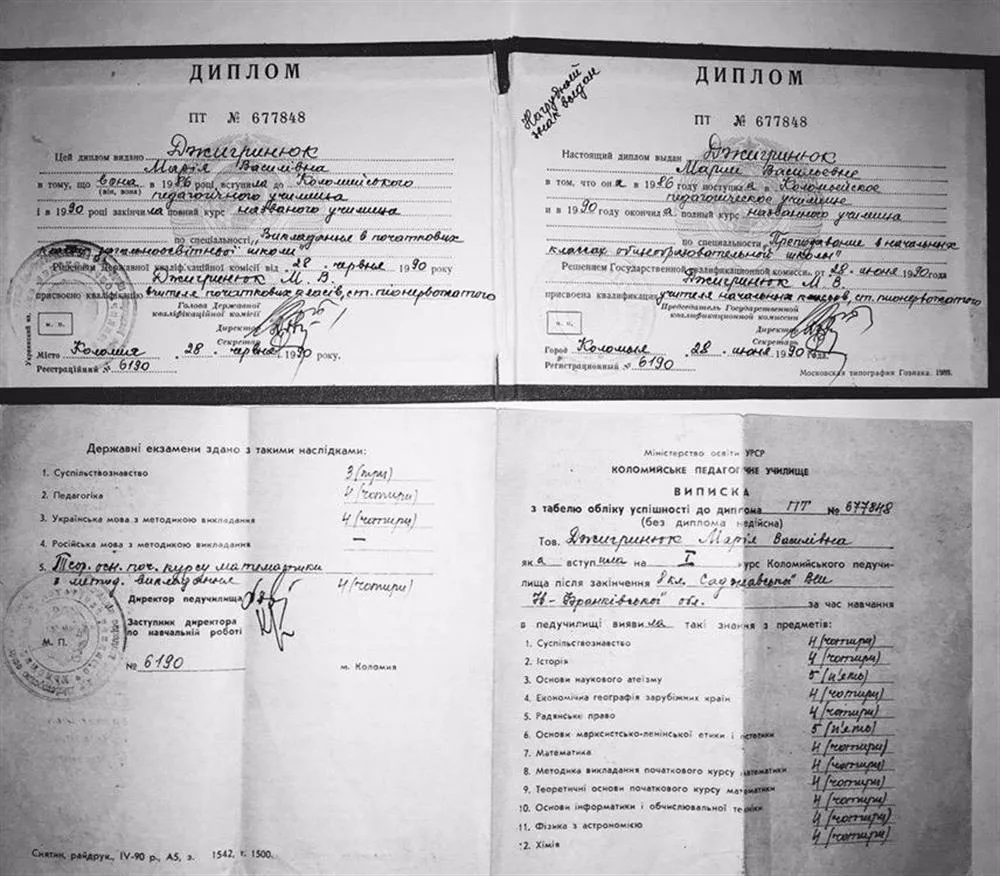 ДИПЛОМ
ПТ № 677848
Цей диплом видано Джигринюк
Марія Василівна
в тому, що вона в 1986 році вступила до Коломийського
(він, вона)
педагогічного училища
і в 1990 році закінчила повний курс названого училища
по спеціальності „Викладання в початкових
класах загальноосвітньої школи"
Рішенням Державної кваліфікаційної комісії від 28 червня 1990 року
Джигринюк М. В.
присвоєно кваліфікацію вчителя початкових класів, ст. піонервожатого
Голова Державної
кваліфікаційної комісії
Директор
Секретар
м. п.
Місто Коломия 28 червня 1990 року.
Реєстраційний № 6190
Украинский яз.
ДИПЛОМ
Нагрудный
знак выдан
ПТ № 677848
Настоящий диплом выдан Джигринюк
Марии Васильевне
в том, что она в 1986 году поступила в Коломыйское
педагогическое училище
и в 1990 году окончила полный курс названного училища
по специальности „Преподавание в начальных
классах общеобразовательной школы"
Решением Государственной квалификационной комиссии от 28 июня 1990 года
Джигринюк М. В.
присвоена квалификация учителя начальных классов, ст. пионервожатого
Председатель Государственной
квалификационной комиссии
Директор
Секретарь
м. п.
Город Коломыя 28 июня 1990 года.
Регистрационный № 6190
Московская типография Гознака. 1989.
Державні екзамени здано з такими наслідками:
1. Суспільствознавство 3 (три)
2. Педагогіка 4 (чотири)
3. Українська мова з методикою викладання 4 (чотири)
4. Російська мова з методикою викладання —
5. Теор. осн. поч. курсу математики
з метод. викладання 4 (чотири)
Директор педучилища
Заступник директора
по навчальній роботі
М. П.
№ 6190
м. Коломия
Снятин, райдрук., IV-90 р., А5, з. 1542, т. 1500.
Міністерство освіти УРСР
КОЛОМИЙСЬКЕ ПЕДАГОГІЧНЕ УЧИЛИЩЕ
ВИПИСКА
з табелю обліку успішності до диплома ПТ № 677848
(без диплома недійсна)
Тов. Джигринюк Марія Василівна
яка вступила на I курс Коломийського педучи-
лища після закінчення 8 кл. Саджавської ВШ
Ів-Франківської обл. за час навчання
в педучилищі виявила такі знання з предметів:
1. Суспільствознавство 4 (чотири)
2. Історія 4 (чотири)
3. Основи наукового атеїзму 5 (п'ять)
4. Економічна географія зарубіжних країн 4 (чотири)
5. Радянське право 4 (чотири)
6. Основи марксистсько-ленінської етики і естетики 5 (п'ять)
7. Математика 4 (чотири)
8. Методика викладання початкового курсу математики 4 (чотири)
9. Теоретичні основи початкового курсу математики 4 (чотири)
10. Основи інформатики і обчислювальної техніки 4 (чотири)
11. Фізика з астрономією 4 (чотири)
12. Хімія 4 (чотири)